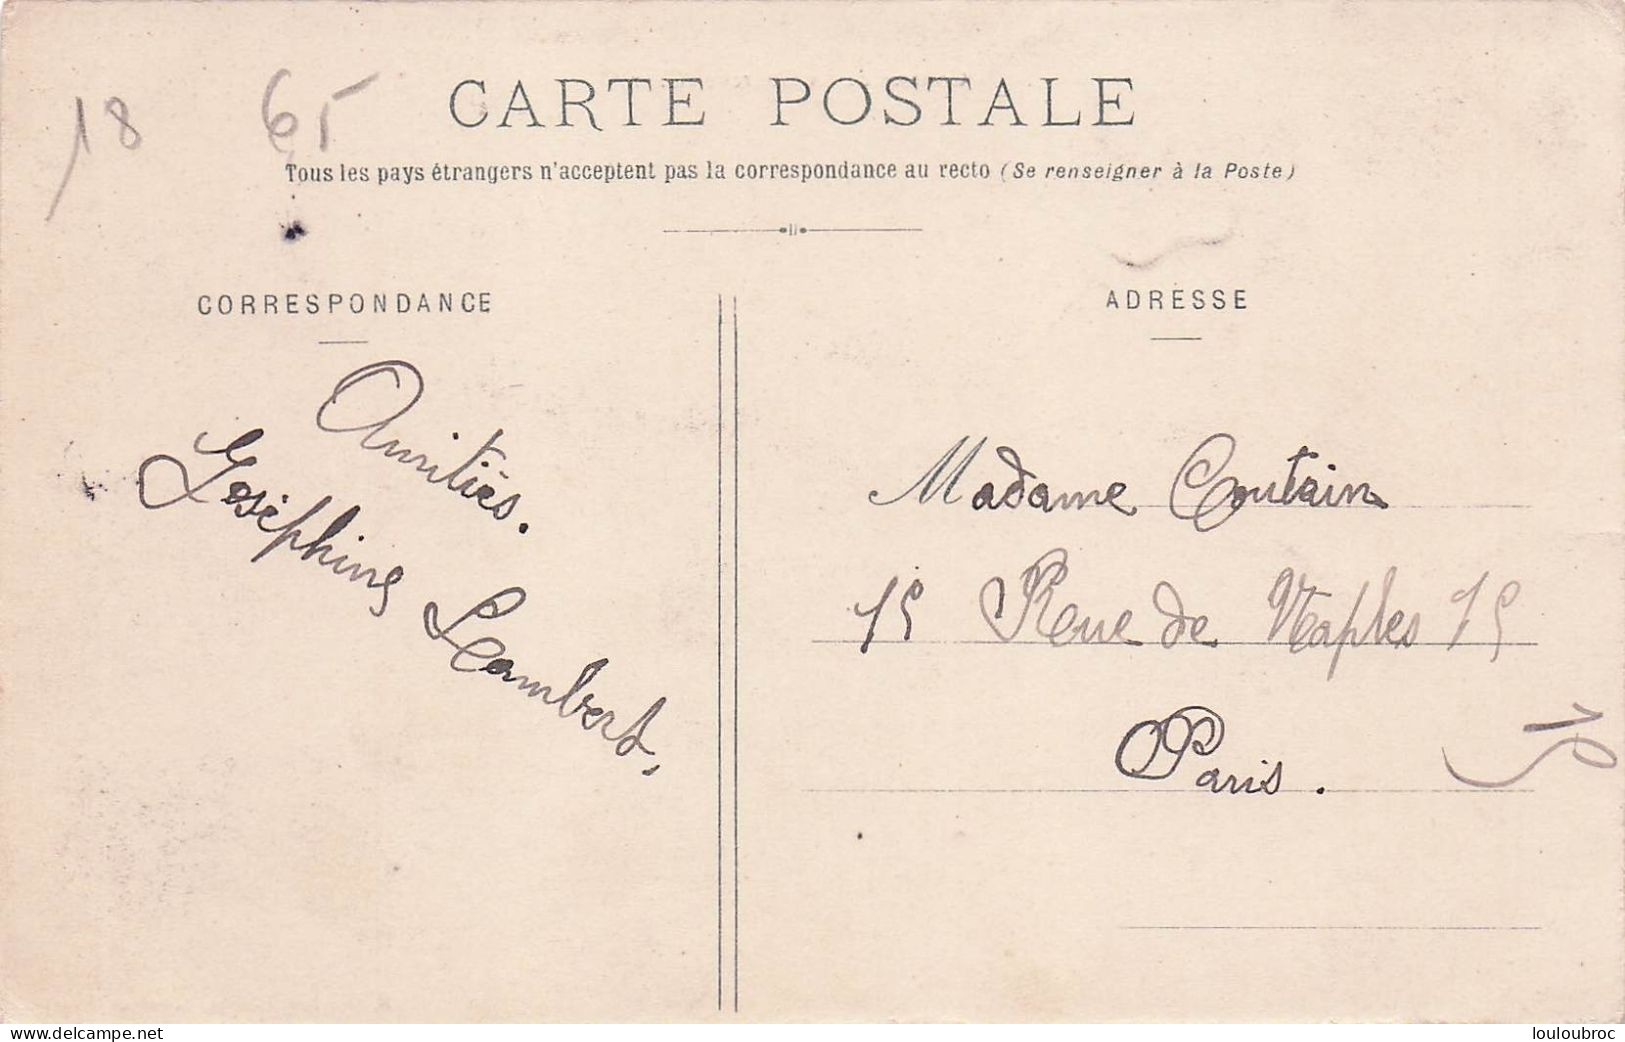 18 65
CARTE POSTALE
Tous les pays étrangers n'acceptent pas la correspondance au recto (Se renseigner à la Poste)
CORRESPONDANCE
Amitiés.
Joséphine Lambert.
ADRESSE
Madame Coutain
15 Rue de Naples 15
Paris.
www.delcampe.net
louloubroc